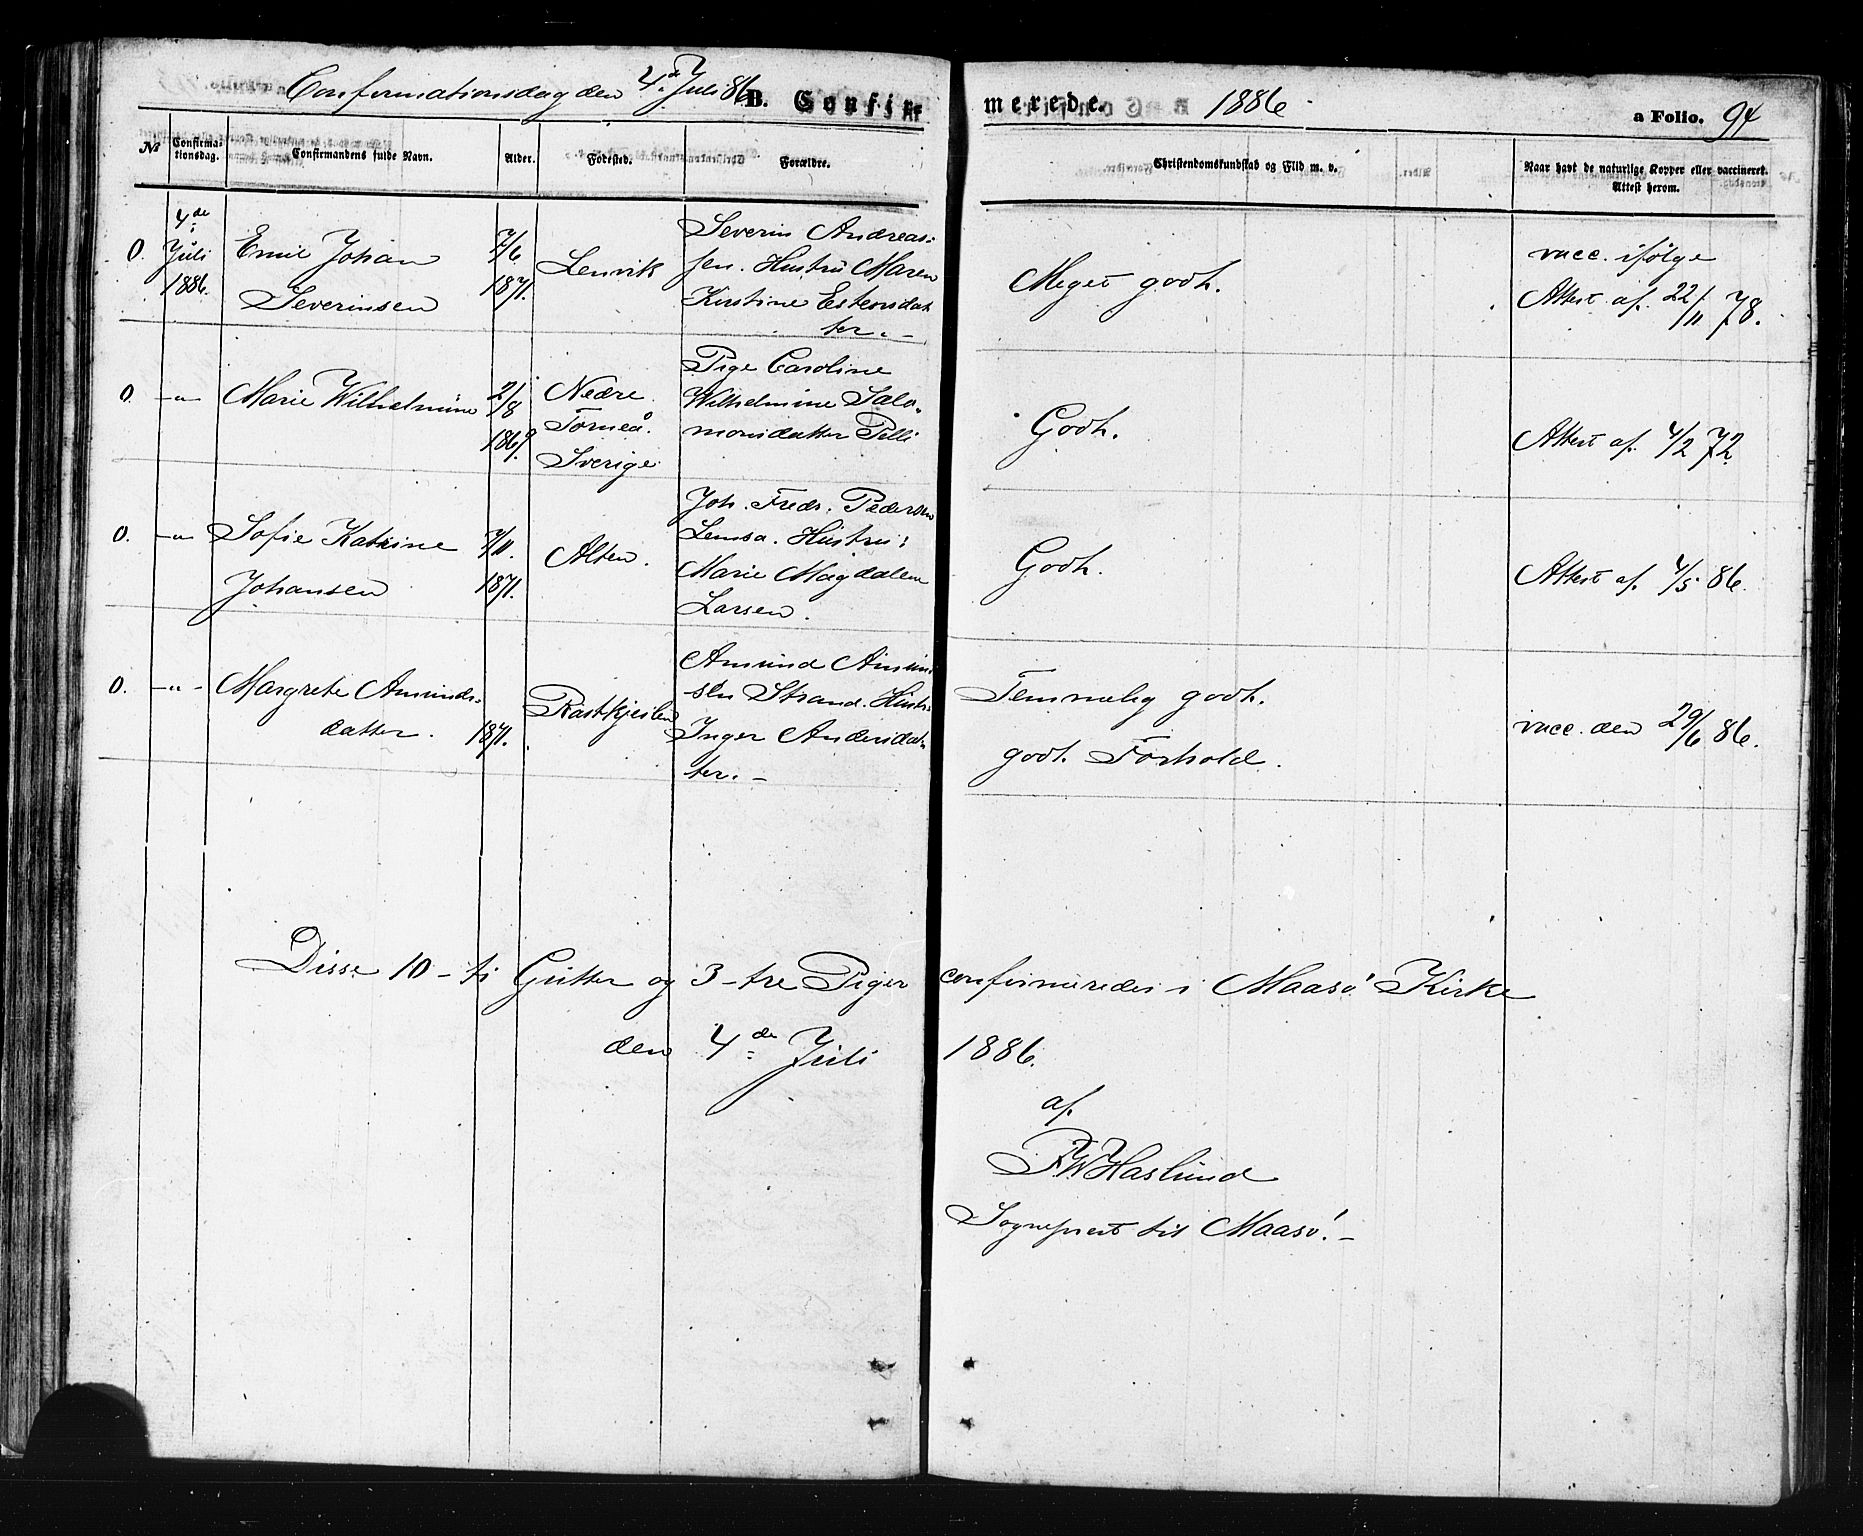 Confirmationsdag den 4de Juli 86 B. Confir
merede. 1886 a Folio. 94
№ Confirma-
tionsdag. Confirmandens fulde Navn. Alder. Fødested. Forældre. Christendomskundskab og Flid m. v. Naar havt de naturlige Kopper eller vaccineret.
Attest herom.
0. 4de
Juli
1886.
Emil Johan
Severinsen
7/6
1871.
Lenvik
Severin Andreas-
sen. Hustru Maren
Kirstine Estensdat
ter. –
Meget godt.
vacc. ifølge
Attest af 22/11 78.
0. –„– Marie Wilhelmine
2/8
1869.
Nedre
Torneå.
Sverige
Pige Caroline
Wilhelmine Salo-
monsdatter Pelli
Godt.
Attest af 4/2 72.
0. –„– Sofie Katrine
Johansen
7/11.
1871.
Alten.
Joh. Fredr. Pedersen
Lemsa. Hustru:
Marie Magdalene
Larsen.
Godt.
Attest af 4/5 86.
0. –„– Margrete Amunds-
datter.
1871.
Amund Amund
sen Strand. Hustr.
Inger Andersdat-
ter. –
Temmelig godt.
godt Forhold.
vacc. den 29/6 86.
Disse 10 – ti Gutter og 3 – tre Piger confirmeredes i Maasø Kirke
den 4de Juli 1886.
af
Haslund
Sogneprest til Maasø. –